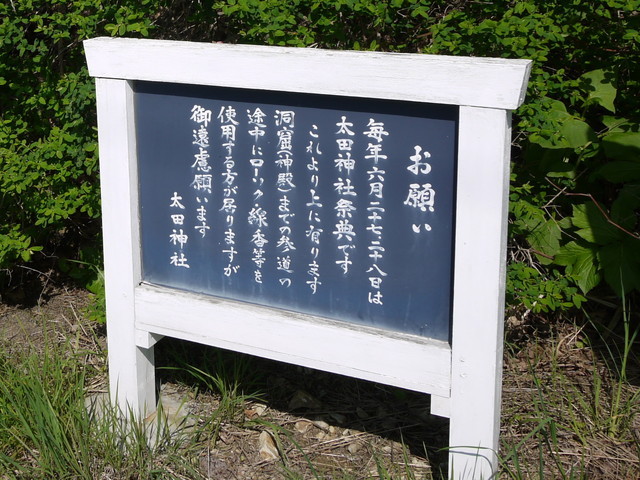 お願い
毎年六月二十七、二十八日は
太田神社祭典です
これより上に有ります
洞窟(神殿)までの参道の
途中にローソク、線香等を
使用する方が居りますが
御遠慮願います
太田神社